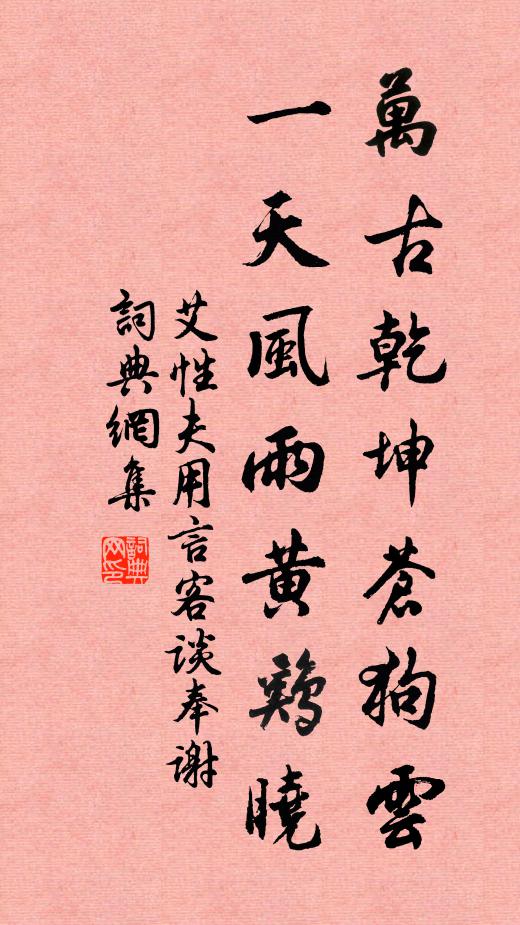 萬古乾坤蒼狗雲
一天風雨黄鷄曉
艾性夫用言客談奉謝
詞典網集
詞典网印